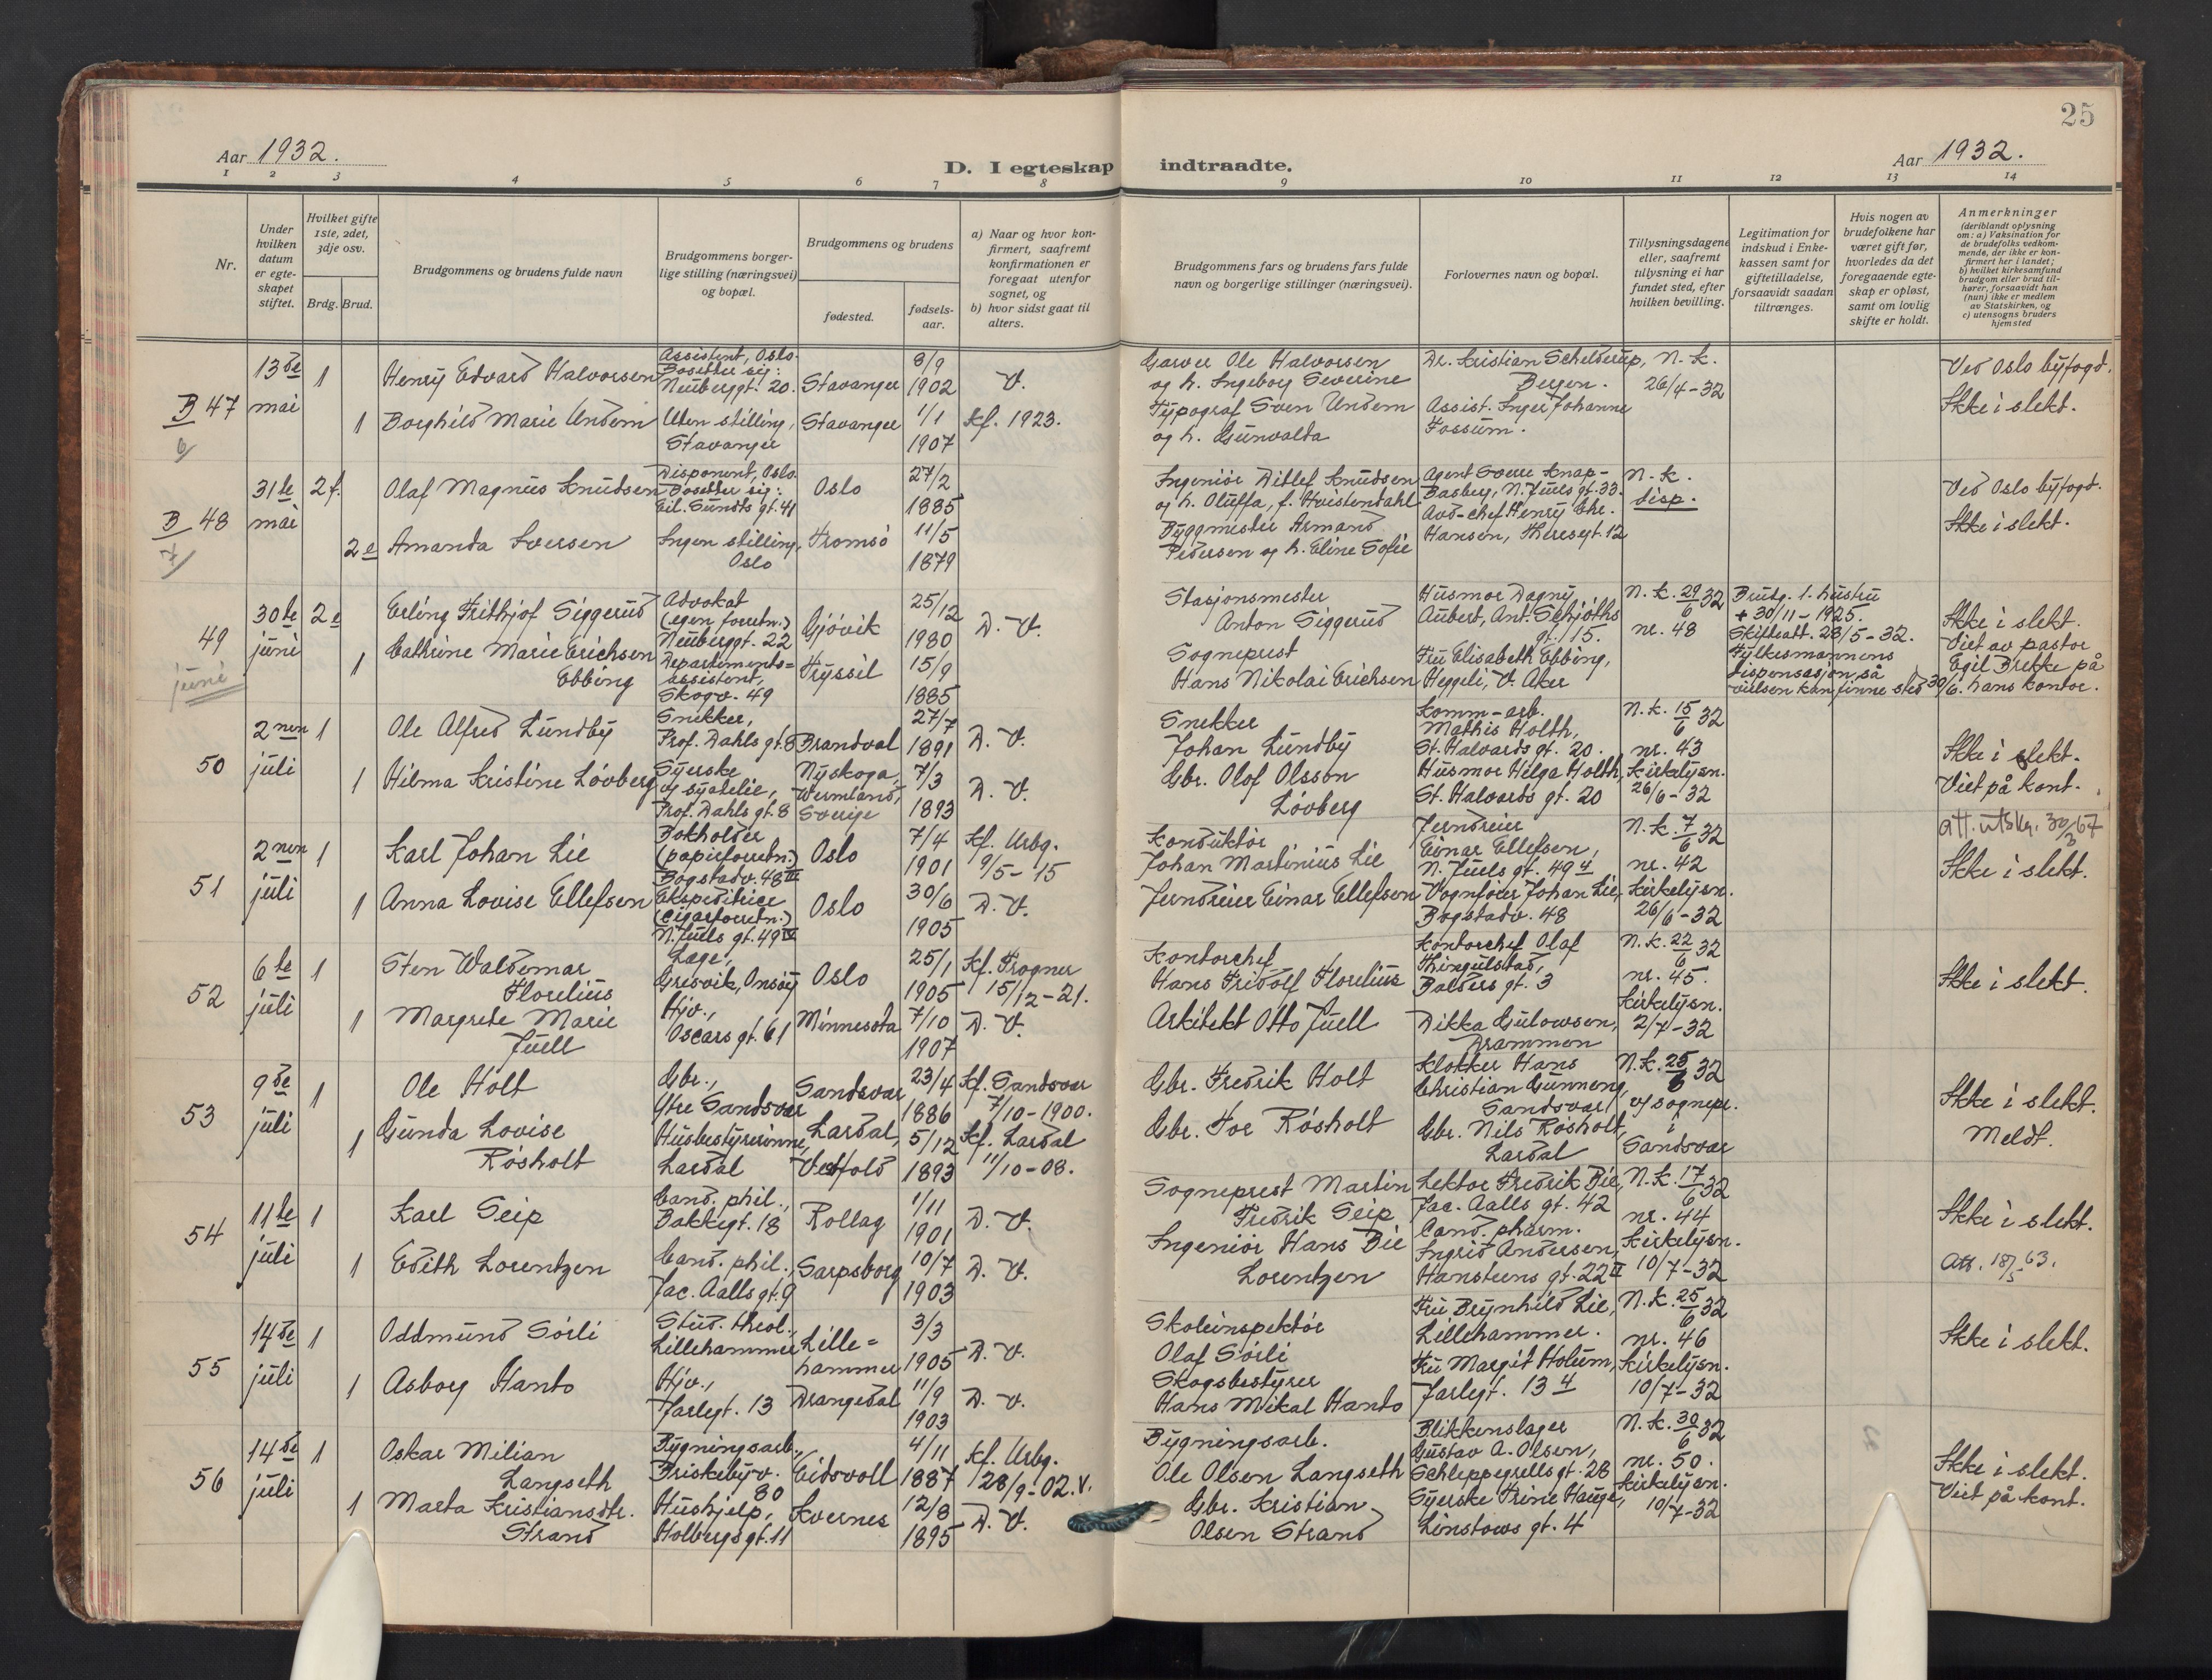 25
Aar 1932.
D. I egteskap indtraadte.
Aar 1932.
1 2 3 4 5 6 7 8 9 10 11 12 13 14
Nr.
Under hvilken datum er egteskapet stiftet.
Hvilket gifte 1ste, 2det, 3dje osv.
Brdg. Brud.
Brudgommens og brudens fulde navn
Brudgommens borgerlige stilling (næringsvei) og bopæl.
Brudgommens og brudens
fødested.
fødselsaar.
a) Naar og hvor konfirmert, saafremt konfirmationen er foregaat utenfor sognet, og
b) hvor sidst gaat til alters.
Brudgommens fars og brudens fars fulde navn og borgerlige stillinger (næringsvei).
Forlovernes navn og bopæl.
Tillysningsdagene eller, saafremt tillysning ei har fundet sted, efter hvilken bevilling.
Legitimation for indskud i Enkekassen samt for giftetilladelse, forsaavidt saadan tiltrænges.
Hvis nogen av brudefolkene har været gift før, hvorledes da det foregaaende egteskap er opløst, samt om lovlig skifte er holdt.
Anmerkninger
(deriblandt oplysning om: a) Vaksination for de brudefolks vedkommende, der ikke er konfirmert her i landet; b) hvilket kirkesamfund brudgom eller brud tilhører, forsaavidt han (hun) ikke er medlem av Statskirken, og c) utensogns bruders hjemsted
B 47
6
13de mai
1
Henry Edvard Halvorsen
Assistent, Oslo.
Bosetter sig:
Neuberggt. 20.
Stavanger
8/9
1902
V.
Garver Ole Halvorsen
og h. Ingeborg Severine
Dr. Kristian Schelderup,
Bergen.
N. k.
26/4-32
Ved Oslo byfogd.
Ikke i slekt.
1
Borghild Marie Undem
Uten stilling,
Stavanger
Stavanger
1/1
1907
Kf. 1923.
Typograf Sven Undem
og h. Gunvalda
Assist. Inger Johanne
Fossum.
B 48
7
31te mai
2 f.
Olaf Magnus Knudsen
Disponent, Oslo.
Bosetter sig:
Eil. Sundts gt. 41
Oslo
27/2
1885
Ingeniør Ditlef Knudsen
og h. Oluffa, f. Hvistendahl
Agent Sverre Knap-
Basberg, N. Juels gt. 33.
N. k.
disp.
Ved Oslo byfogd.
Ikke i slekt.
2 e
Amanda Iversen
Ingen stilling,
Oslo
Tromsø
11/5
1879
Byggmester Armand
Pedersen og h. Eline Sofie
Avd-chef Henry Chr.
Hansen, Theresegt. 12
49
juni
30te juni
2 e
Erling Frithjof Siggerud
Advokat
(egen forretn.)
Neuberggt. 22
Gjøvik
25/12
1980
D. V.
Stasjonsmester
Anton Siggerud
Husmor Dagny
Aubert, Ant. Schjøths
gt. 15.
N. k. 29/6 32
nr. 48
Brudg. 1. hustru
+ 30/11-1925.
Skifteatt. 28/5-32.
Fylkesmannens
dispensasjon så
vielsen kan finne sted 30/6.
Ikke i slekt.
Viet av pastor
Egil Brekke på
hans kontor.
1
Cathrine Marie Erichsen
Ebbing
Departements=
assistent,
Skogv. 49
Trysil
15/9
1885
Sogneprest
Hans Nikolai Erichsen
Fru Elisabeth Ebbing,
Heggeli, V. Aker
50
2nen juli
1
Ole Alfred Lundby
Snekker,
Prof. Dahls gt. 8
Brandval
27/7
1891
D. V.
Snekker
Johan Lundby
Komm-arb.
Mathis Holth,
St. Halvards gt. 20.
N. k. 15/6 32
nr. 43
Kirkelysn.
26/6-32
Ikke i slekt.
Viet på kont.
1
Hilma Kristine Løvberg
Syerske
v/ syatelie,
Prof. Dahls gt. 8
Nyskoga,
Wermland,
Sverige
7/3
1893
D. V.
Gbr. Olof Olsson
Løvberg
Husmor Helga Holth,
St. Halvards gt. 20
51
2nen juli
1
Karl Johan Lie
Bokholder
(papirforretn.)
Bogstadv. 48 III
Oslo
7/4
1901
Kf. Urbg.
9/5-15
Konduktør
Johan Martinius Lie
Jerndreier
Einar Ellefsen,
N. Juels gt. 49 4
N. k. 7/6 32
nr. 42
Kirkelysn.
26/6-32
att. utskr. 30/3 67
Ikke i slekt.
1
Anna Lovise Ellefsen
Ekspeditrice
(cigarforretn.)
N. Juels gt. 49 IV
Oslo
30/6
1905
D. V.
Jerndreier Einar Ellefsen
Vognfører Johan Lie,
Bogstadv. 48
52
6te juli
1
Sten Waldemar
Florelius
Læge,
Gresvik, Onsøy
Oslo
25/1
1905
Kf. Frogner
15/12-21.
Kontorchef
Hans Fridolf Florelius
Kontorchef Olaf
Thingulstad,
Balders gt. 3
N. k. 22/6 32
nr. 45.
Kirkelysn.
2/7-32
Ikke i slekt.
1
Margrete Marie
Juell
Hjv.,
Oscars gt. 61
Minnesota
7/10
1907
D. V.
Arkitekt Otto Juell
Dikka Gulowsen,
Drammen
53
9de juli
1
Ole Holt
Gbr.,
Ytre Sandsvær
Sandsvær
23/4
1886
Kf. Sandsvær
7/10-1900.
Gbr. Fredrik Holt
Klokker Hans
Christian Gunneng,
Sandsvær
N. k. 25/6 32
v/ sognepr.
i
Sandsvær
Ikke i slekt.
Meldt.
1
Gunda Lovise
Røsholt
Husbestyrerinne,
Lardal
Lardal,
Vestfold
5/12
1893
Kf. Lardal
11/10-08.
Gbr. Tor Røsholt
Gbr. Nils Røsholt,
Lardal
54
11te juli
1
Karl Seip
Cand. phil.,
Bakkegt. 18
Rollag
1/11
1901
D. V.
Sogneprest Martin
Fredrik Seip
Lektor Fredrik Bie,
Jac. Aalls gt. 42
N. k. 17/6 32
nr. 44
Kirkelysn.
10/7-32
Ikke i slekt.
Att. 18/5 63.
1
Edith Lorentzen
Cand. phil.,
Jac. Aalls gt. 9
Sarpsborg
10/7
1903
D. V.
Ingeniør Hans Bie
Lorentzen
Cand. pharm.
Ingrid Andersen,
Hansteens gt. 22 II
55
14de juli
1
Oddmund Sørli
Stud. theol.,
Lillehammer
Lille=
hammer
3/3
1905
D. V.
Skoleinspektør
Olaf Sørli
Fru Brynhild Lie,
Lillehammer.
N. k. 25/6 32
nr. 46
Kirkelysn.
10/7-32
Ikke i slekt.
1
Asborg Hanto
Hjv.,
Jarlegt. 13
Drangedal
11/9
1903
D. V.
Skogsbestyrer
Hans Mikal Hanto
Fru Margit Holum,
Jarlegt. 13 4
56
14de juli
1
Oskar Milian
Langseth
Bygningsarb.,
Briskebyv.
80
Eidsvoll
4/11
1887
Kf. Urbg.
28/9-02. V.
Bygningsarb.
Ole Olsen Langseth
Blikkenslager
Gustav A. Olsen,
Schleppegrells gt. 28
N. k. 30/6 32
nr. 50.
Kirkelysn.
10/7-32
Ikke i slekt.
Viet på kont.
1
Marta Kristiansdtr.
Strand
Hushjelp,
Holbergs gt. 11
Kvernes
12/8
1895
D. V.
Gbr. Kristian
Olsen Strand
Syerske Trine Hauge,
Linstows gt. 4